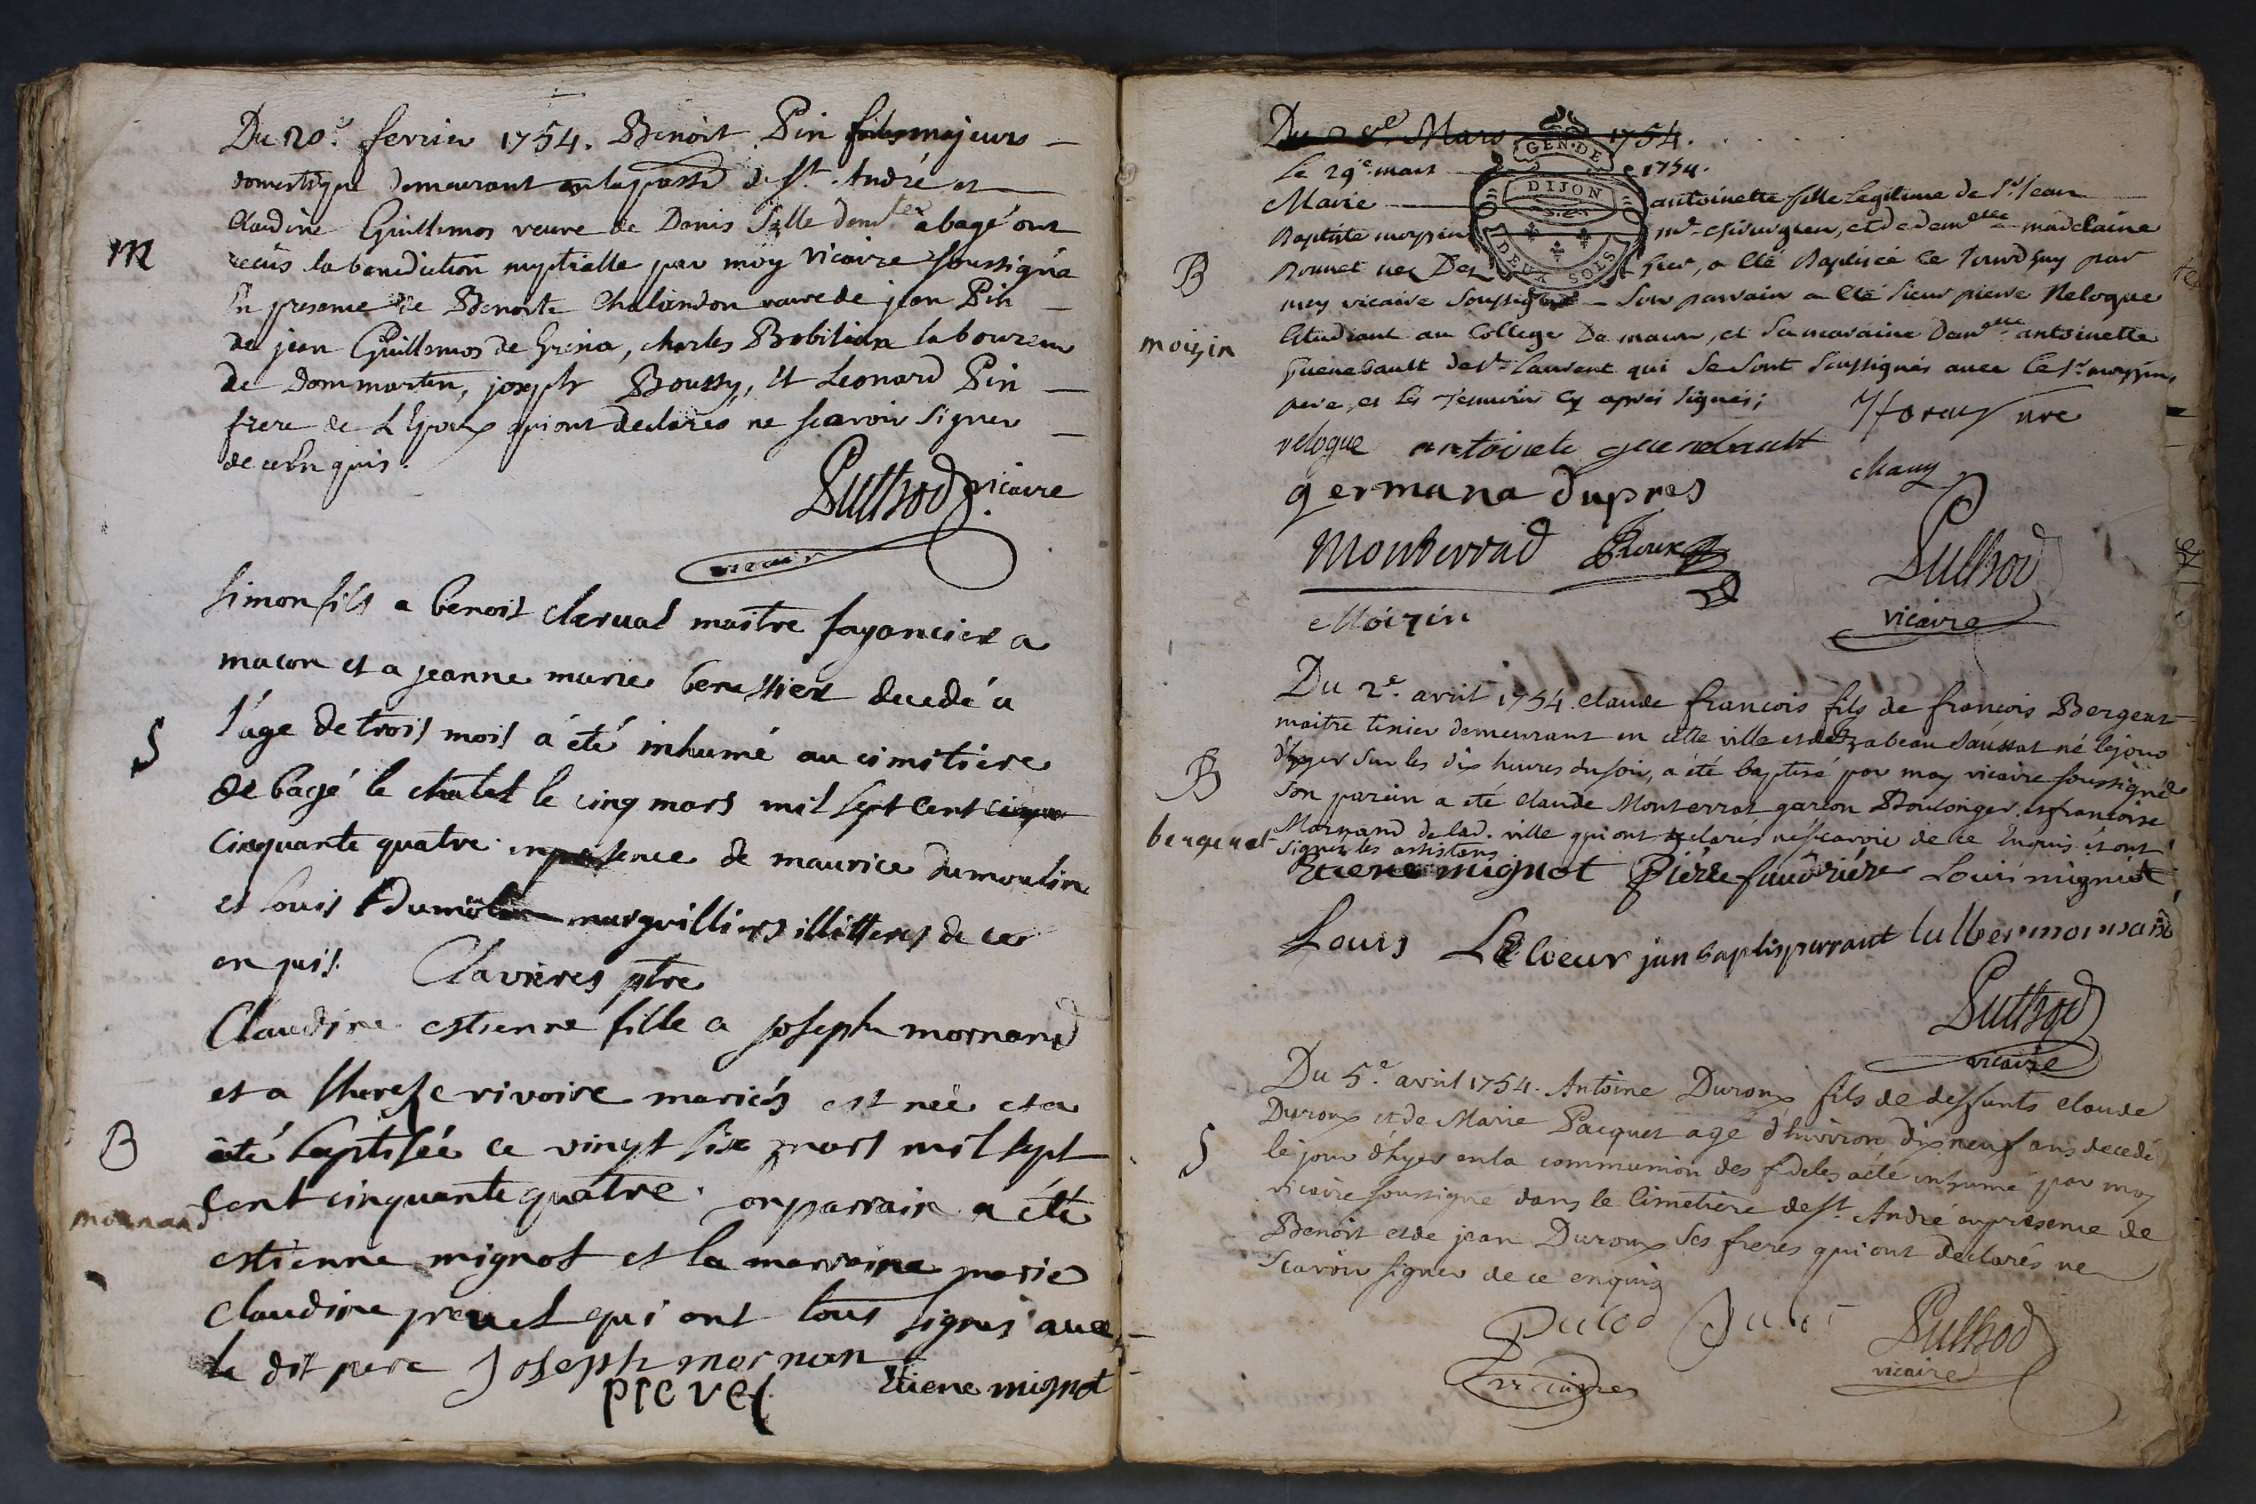 M
Du 20e. fevrier 1754. Benoit Pin majeurs
domestique demeurant en la poste de St. André et
Claudine Guillemos veuve de Denis Salle demte a bagé ont
recûs la benediction nuptialle par moy vicaire soussigné
En presence de Benoite Chalandon veuve de jean Pin
de jean Guillemos de Grina, charles Bobilion laboureur
de Dommartin, joseph Boussy, et Leonard Pin
frere de L'Epoux qui ont declarés ne scavoir signer
de ce Enquis.
Puthod vicaire
vicair
S
Simon fils a benoit clerval maître fayancier a
macon et a jeanne marie berthier decedé a
l'age de trois mois a été inhumé au cimitiere
de bagé le chatel le cinq mars mil sept cent
cinquante quatre en presence de maurice dumoulin
et louis dumolin marguilliers illitterés de ce
enquis. Clavieres ptre
B
mornand
Claudine estienne fille a joseph mornand
et a therese rivoire mariés est née et a
été baptisée ce vingt six mars mil sept
cent cinquante quatre. son parrain a été
estienne mignot et la marraine marie
claudine prevel qui ont tous signés avec
le dit pere Joseph mornan
prevel Etiene mignot
Du Mars 1754.
GEN. DE
DIJON
DEUX SOLS
Le 29e. mars 1754.
B
moizin
Marie antoinette fille Legitime de Sr. Jean
Baptiste moyzin md. chirurgien, et de demelle madelaine
Bonnet née hier, a été Baptisée ce jourdhuy par
moy vicaire soussigné son parrain a été sieur pierre Veloque
Etudiant au College De macon, et sa maraine demelle antoinette
Guenebault de St. Laurent qui se sont soussignés avec le Sr. moyzin
pere, et les temoins cy aprés signés;
veloque antoinete guenebault
chany
germana dupres
Monterrad Roux
Puthod
vicaire
Moizin
B
bergeret
Du 2e. avril 1754. claude françois fils de françois Bergeret
maitre tinier demeurant en cette ville et d'Izabeau saussat né le jour
d'hyer sur les dix heures du soir, a été baptisé par moy vicaire soussigné
son parain a été claude Monterrat garçon Boulonger et françoise
Mornand de lad. ville qui ont declarés ne scavoir de ce Enquis et ont
signés les assistans
Etiene mignot Pierre favoriere Louis mignot
Louis Le Coeur jan baptis perraut
Puthod
vicaire
S
Du 5e. avril 1754. Antoine Duroux fils de deffunts claude
Duroux et de Marie Pacquet agé d'Environ dix neuf ans decedé
le jour d'hyer en la communion des fideles a été inhumé par moy
vicaire soussigné dans le cimetiere de St. André en presence de
Benoit et de jean Duroux ses freres qui ont declarés ne
scavoir signer de ce enquis
Puthod
vicaire